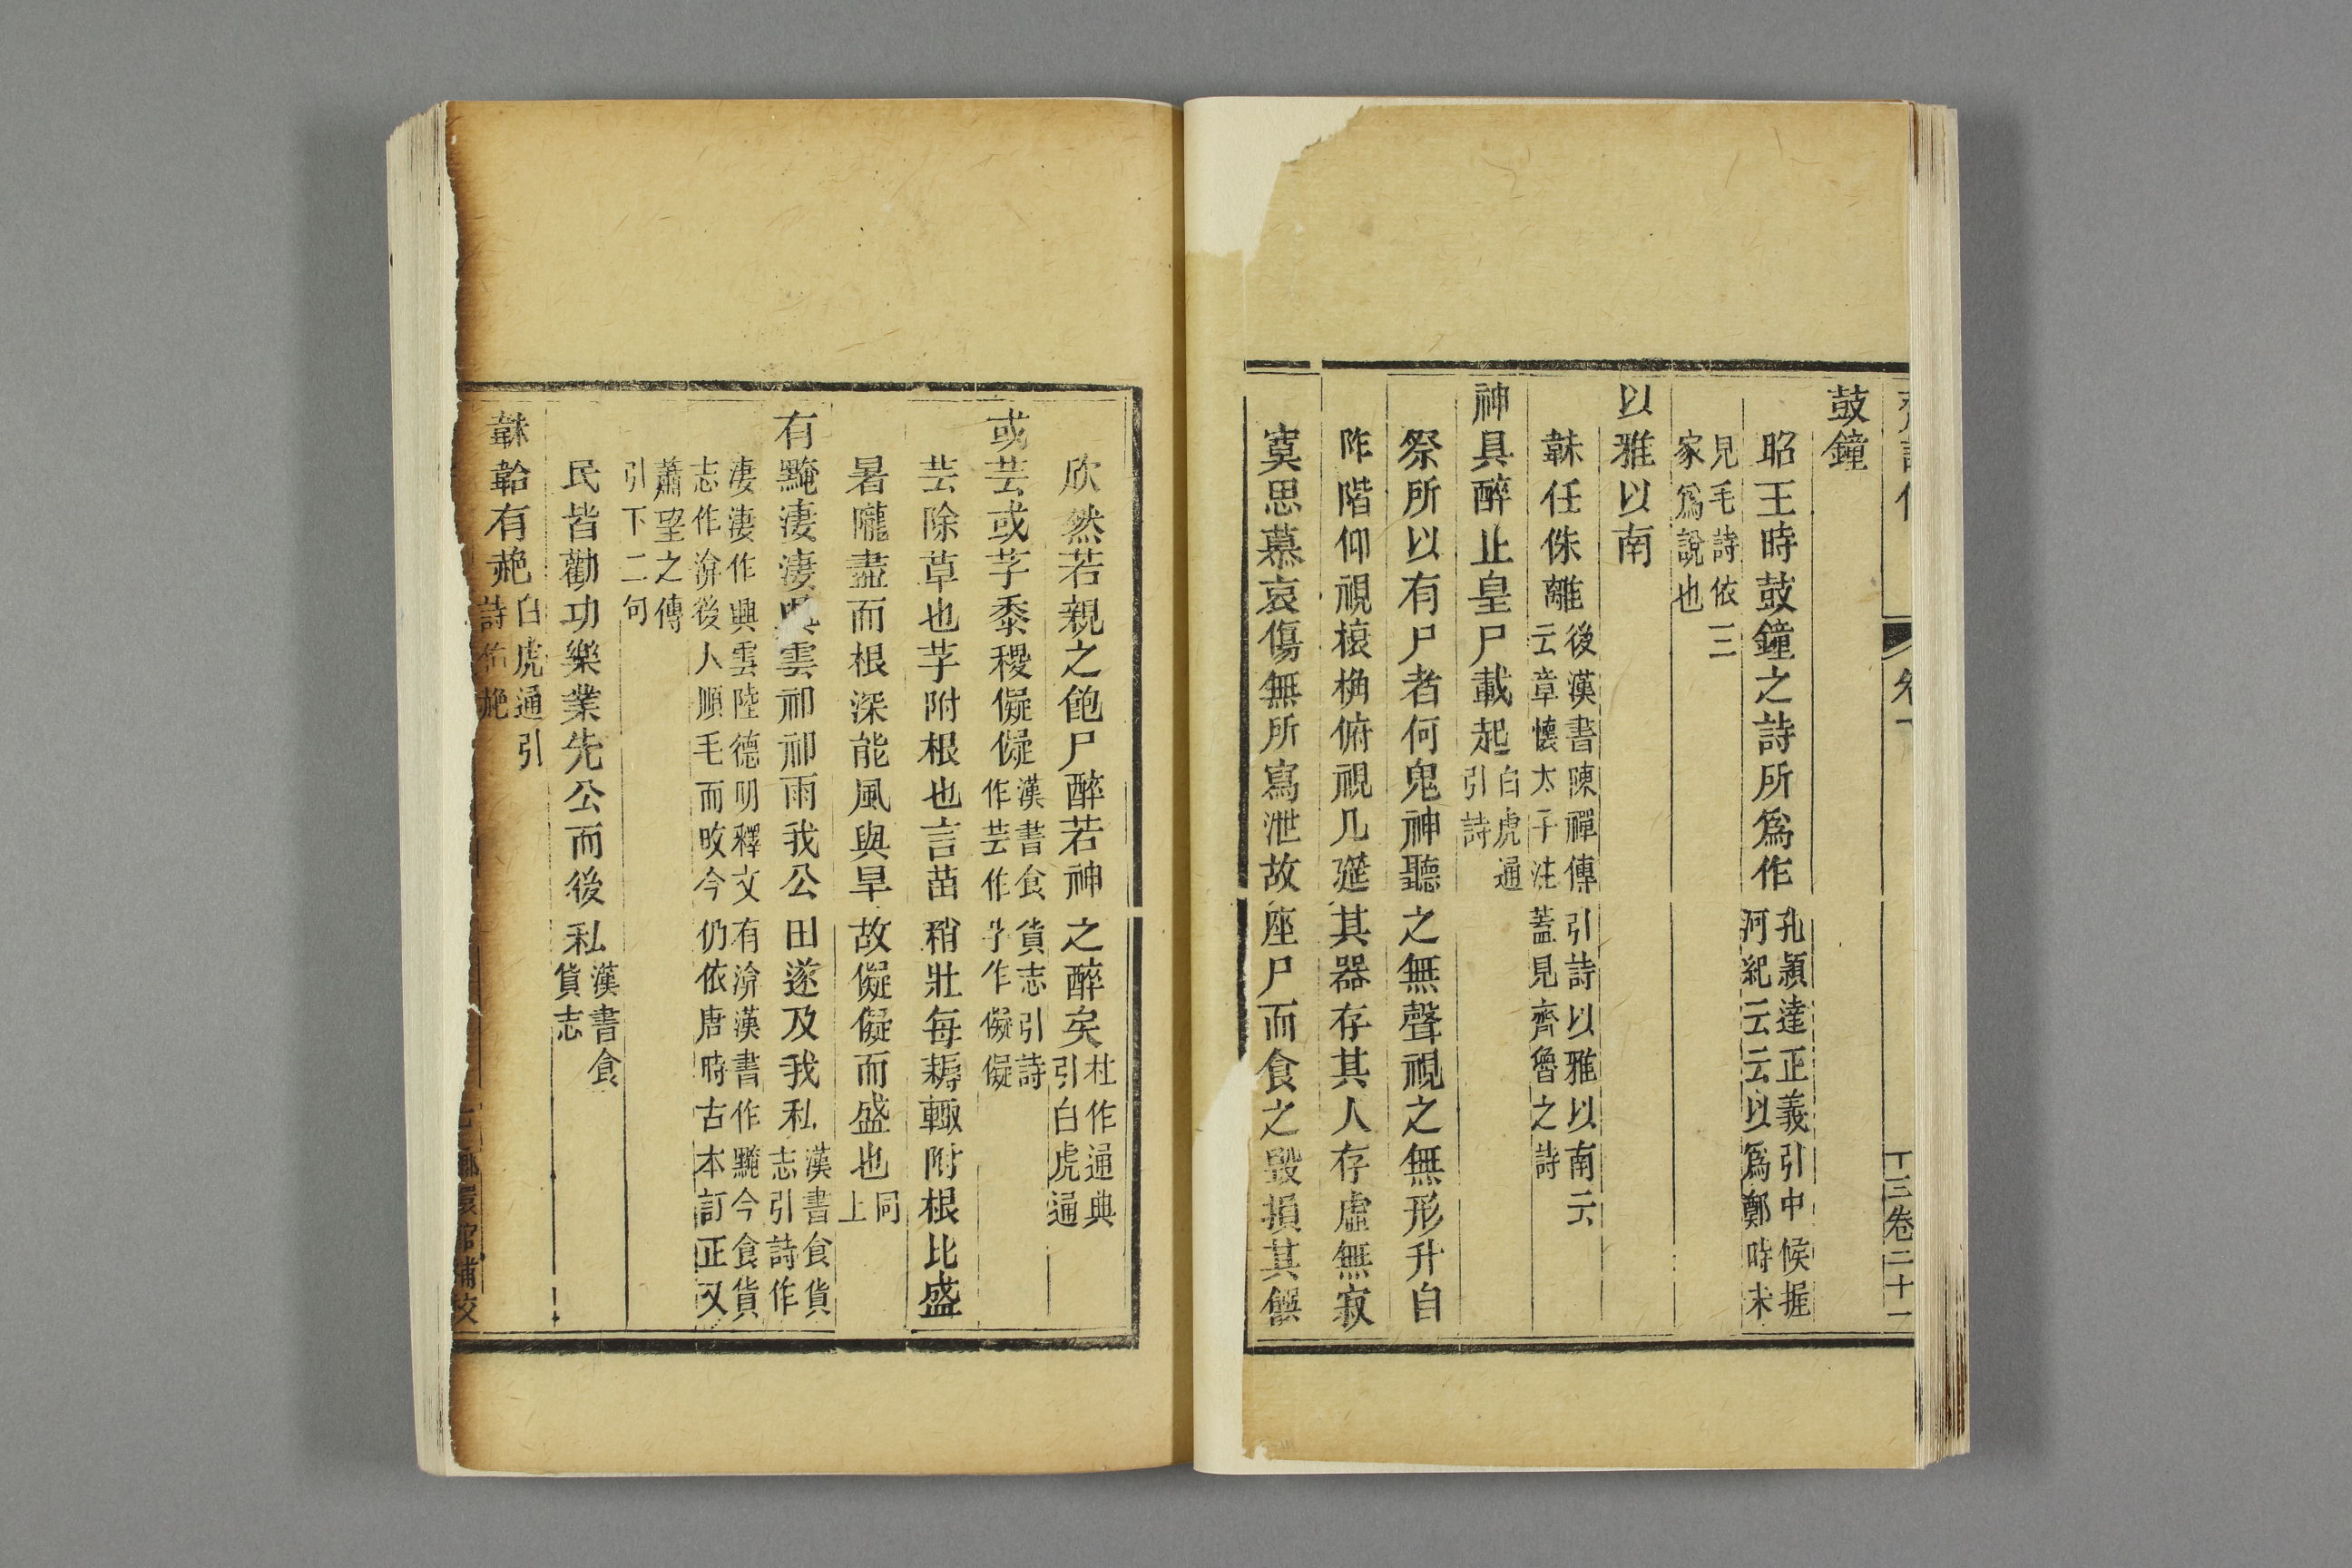 卷
十三卷二十一
鼓鐘
昭王時鼓鐘之詩所爲作孔潁達正義引中候握河紀云云以爲鄭時未
見毛詩依三家爲說也
以雅以南
韎任侏離後漢書陳禪傳引詩以雅以南云云章懷太子注蓋見齊魯之詩
神具醉止皇尸載起白虎通引詩
祭所以有尸者何鬼神聽之無聲視之無形升自
阼階仰視榱桷俯視几筵其器存其人存虛無寂
寞思慕哀傷無所寫泄故座尸而食之毀損其饌
欣然若親之飽尸醉若神之醉矣杜作通典引白虎通
或芸或芓黍稷儗儗漢書食貨志引詩作芸作芓作儗儗
芸除草也芓附根也言苗稍壯每耨輒附根比盛
暑隴盡而根深能風與旱故儗儗而盛也同上
有黤淒淒興雲祁祁雨我公田遂及我私漢書食貨志引詩作
淒淒作興雲陸德明釋文有渰漢書作黤今食貨志作渰後人順毛而改今仍依唐時古本訂正又
蕭望之傳引下二句
民皆勸功樂業先公而後私漢書食貨志
韎韐有赩白虎通引詩作赩
補校